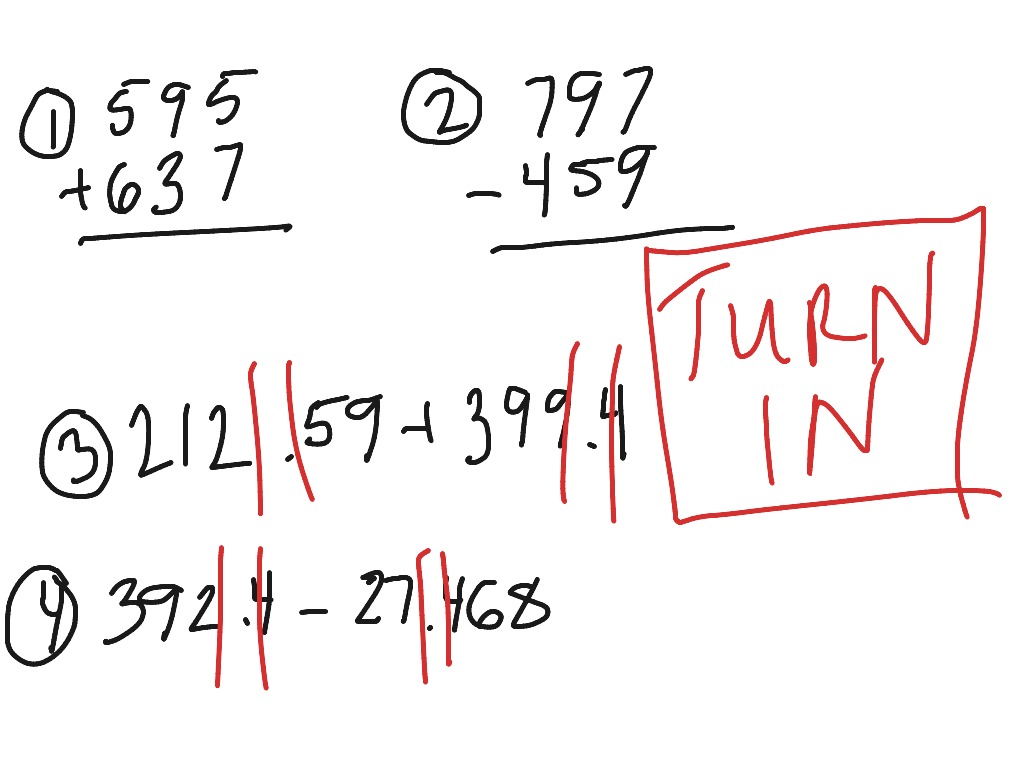 ① 595
+ 637
② 797
- 459
TURN
IN
③ 212.59 + 399.4
④ 392.4 - 27.468